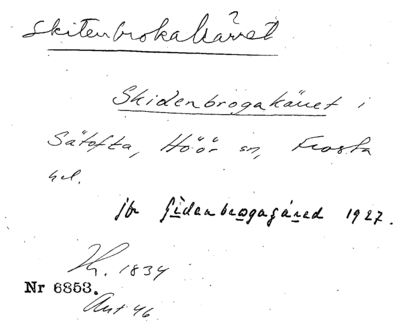 ?
Skitenbrokakärret
Skidenbrogakärret i
Sätofta, Höör sn, Frosta
hd.
jfr Sidenbrogagäred 1927.
1834
Nr 6853.
Ant 46